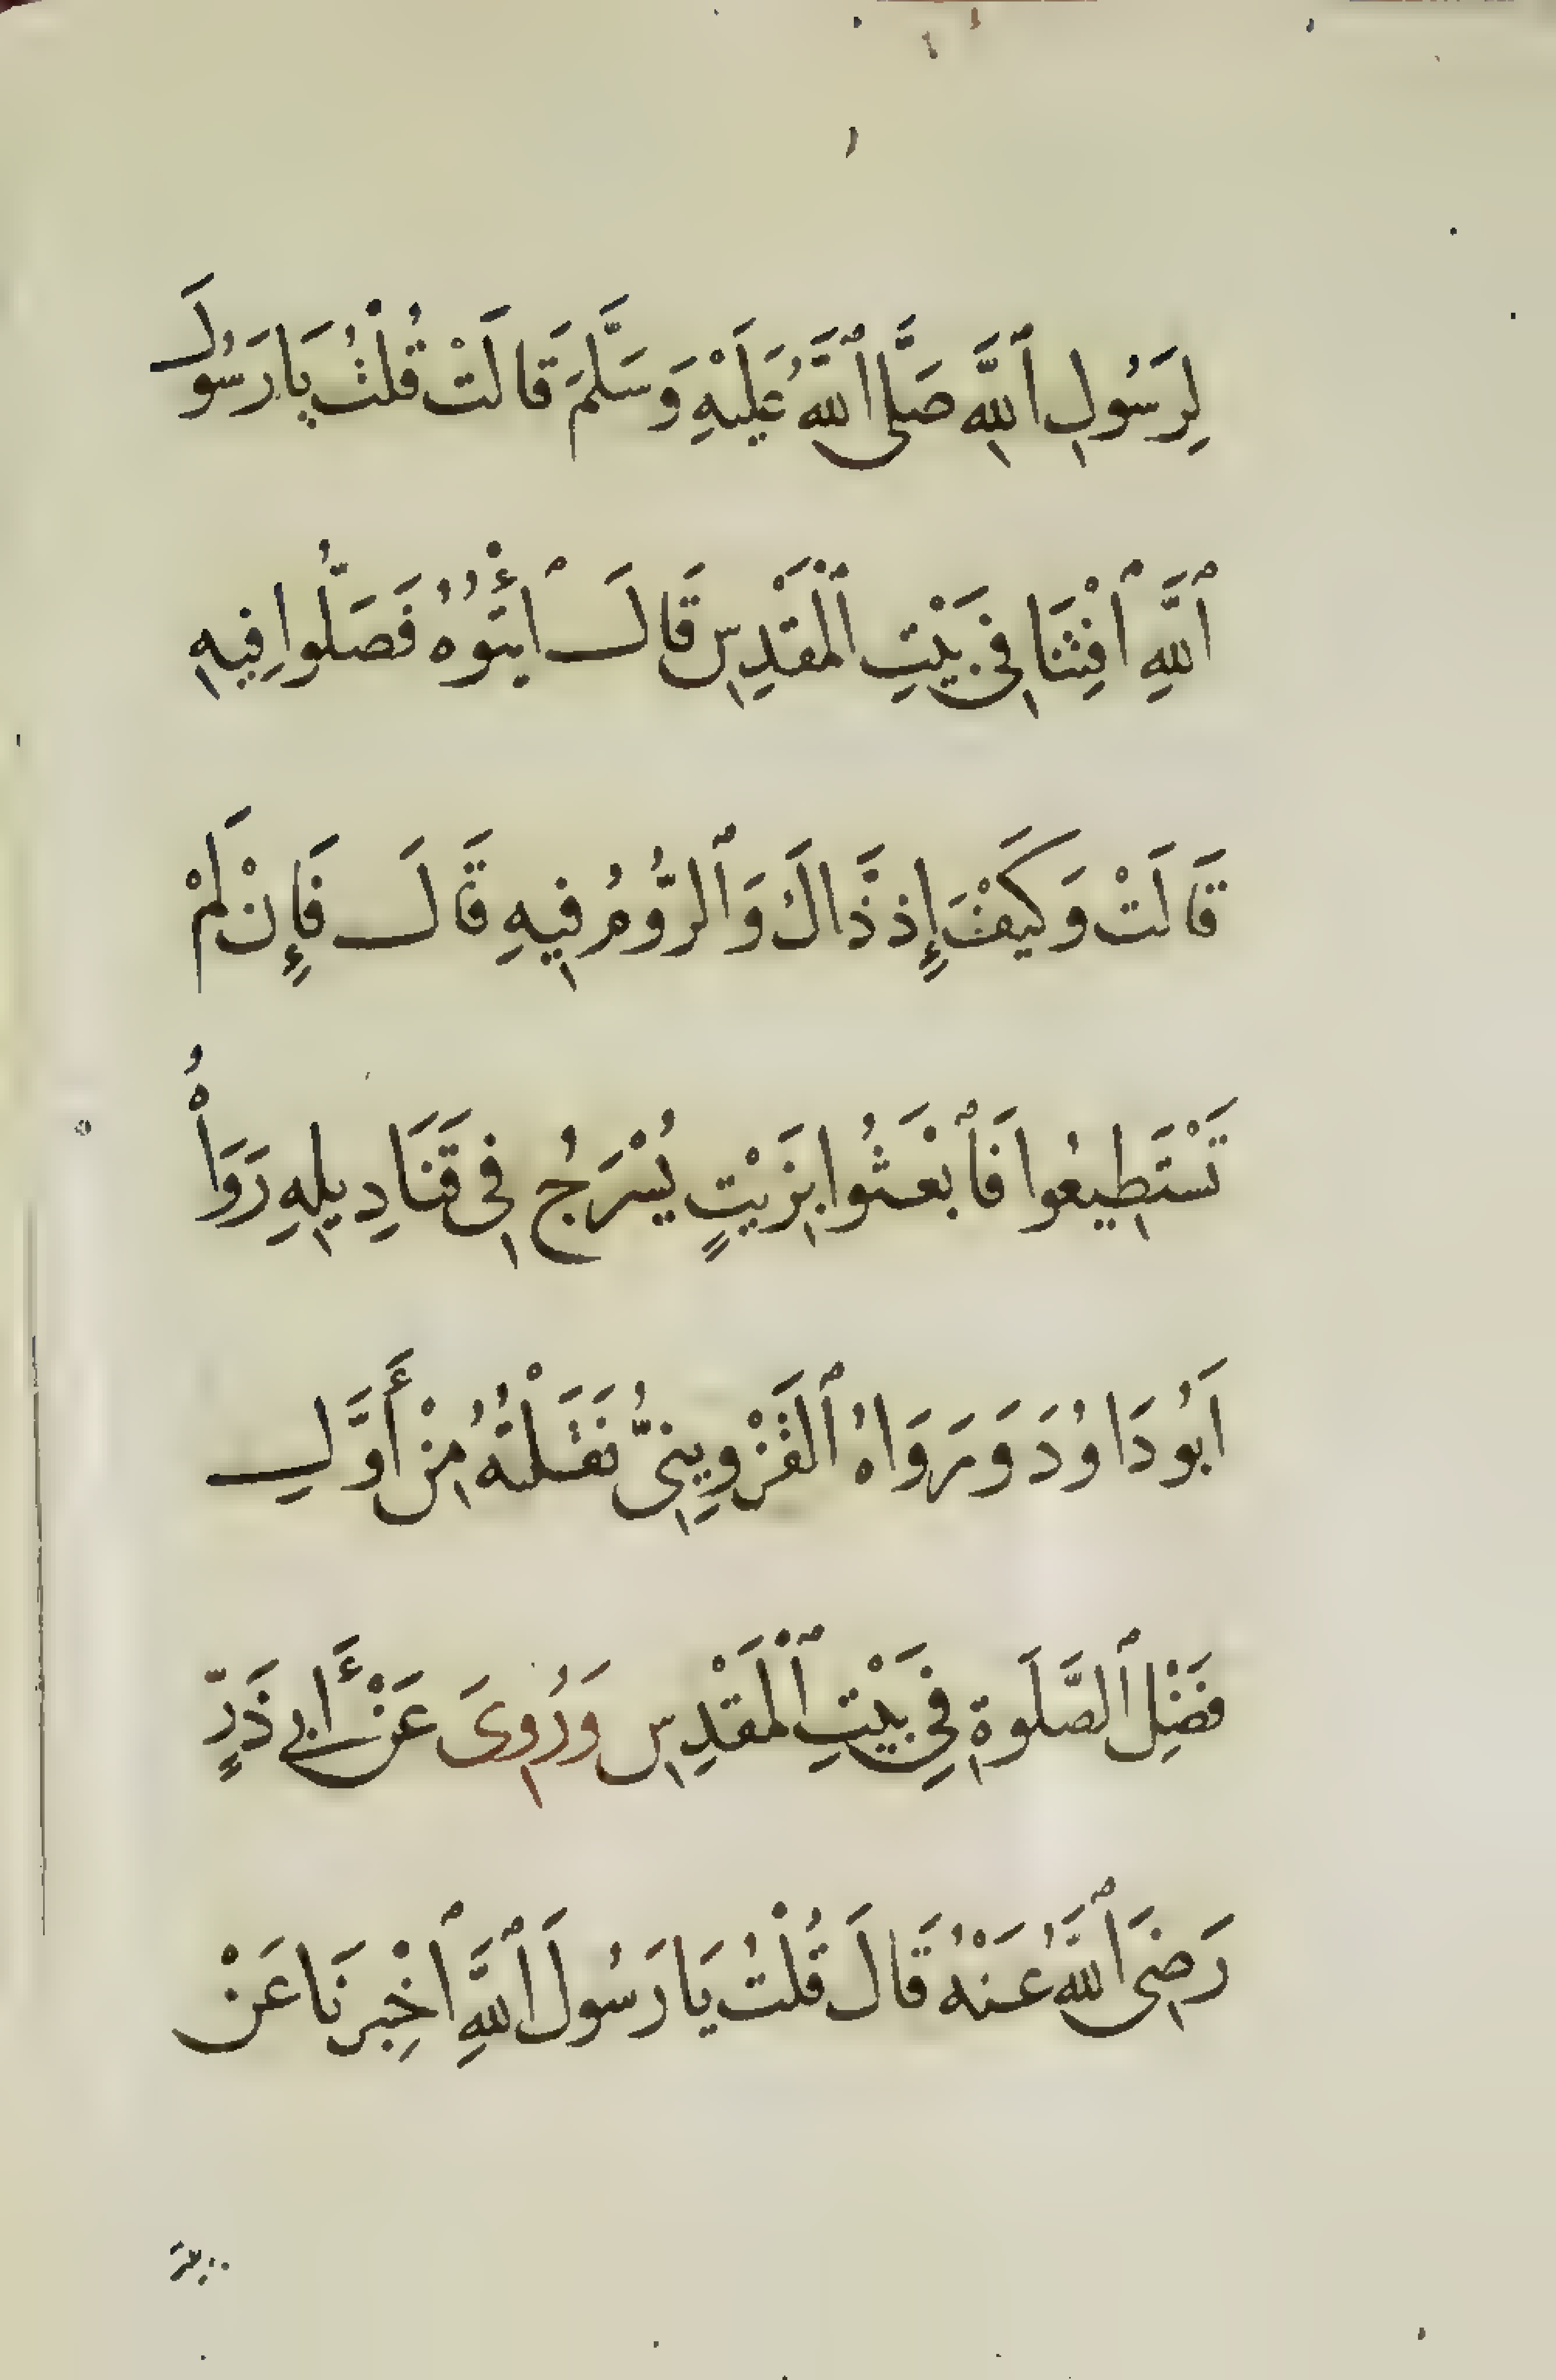 لِرَسُولِ ٱللَّهِ صَلَّى ٱللَّهُ عَلَيْهِ وَسَلَّمَ قَالَتْ قُلْتُ يَا رَسُولَ
ٱللَّهِ ٱفْتِنَا فِى بَيْتِ ٱلْمَقْدِسِ قَالَ ٱئْتُوهُ فَصَلُّوا فِيهِ
قَالَتْ وَكَيْفَ إِذ ذَّاكَ وَٱلرُّومُ فِيهِ قَالَ فَإِنْ لَمْ
تَسْتَطِيعُوا فَٱبْعَثُوا بِزَيْتٍ يُسْرَجُ فِى قَنَادِيلِهِ رَوَاْهُ
اَبُو دَاوُدَ وَرَوَاهُ ٱلْقَزْوِينِىُّ نَقَلْتُهُ مِنْ أَوَّلِ
فَضْلِ ٱلصَّلَوةِ فِي بَيْتِ ٱلْمَقْدِسِ وَرُوِىَ عَنْ أَبِي ذَرٍّ
رَضِىَ ٱللَّهُ عَنْهُ قَالَ قُلْتُ يَا رَسُولَ ٱللَّهِ ٱخْبِرنَا عَنْ